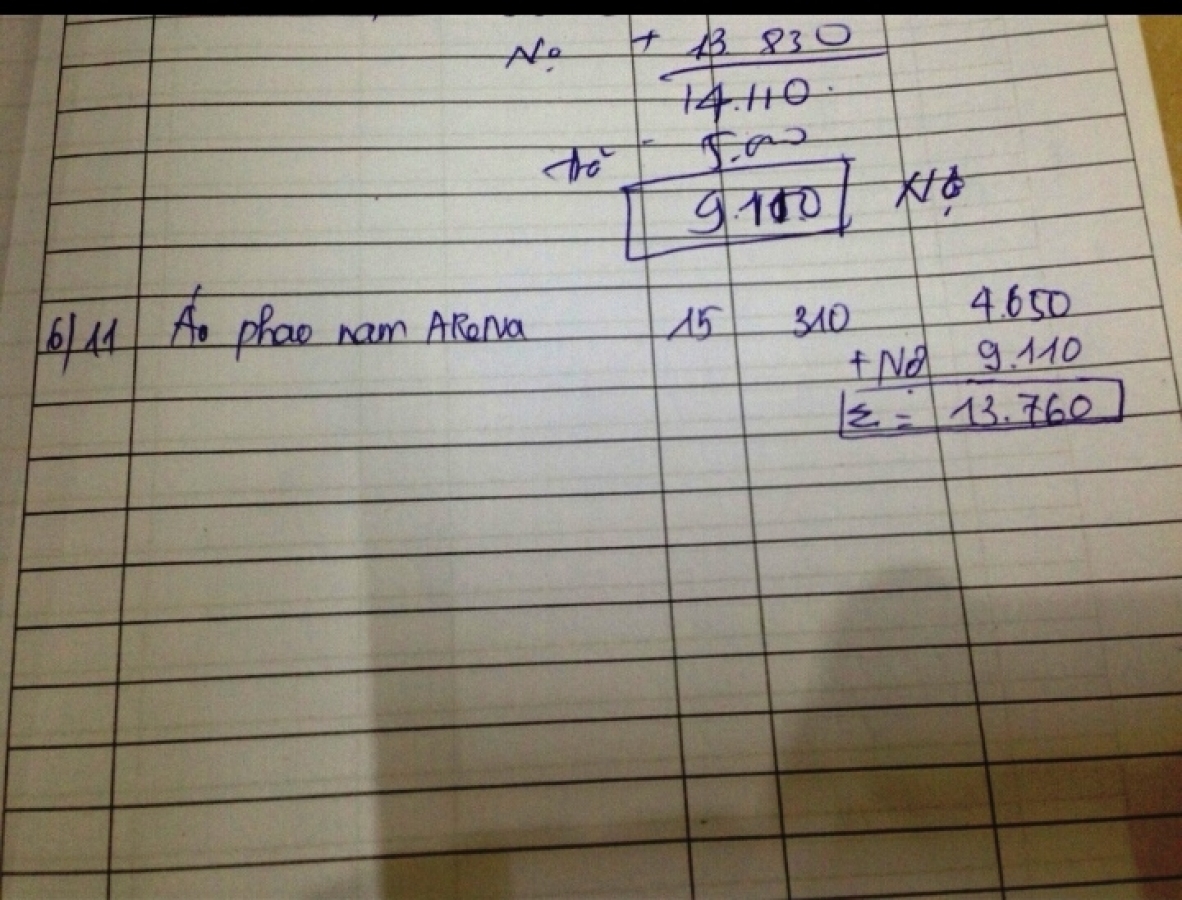 Nợ + 13 830
14.110
trả - 5.000
9.110 Nợ
6/11 Áo phao nam ARENA 15 310 4.650
+ Nợ 9.110
Σ = 13.760